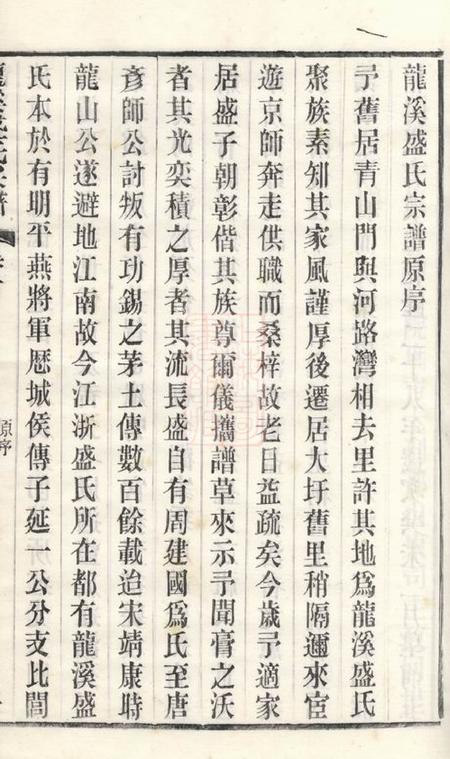 龍溪盛氏宗譜原序
予舊居青山門與河路灣相去里許其地爲龍溪盛氏
聚族素知其家風謹厚後遷居大圩舊里稍隔邇來宦
遊京師奔走供職而桑梓故老日益疏矣今歲予適家
居盛子朝彰偕其族尊爾儀攜譜草來示予聞膏之沃
者其光奕積之厚者其流長盛自有周建國爲氏至唐
彥師公討叛有功錫之茅土傳數百餘載迨宋靖康時
龍山公遂避地江南故今江浙盛氏所在都有龍溪盛
氏本於有明平燕將軍歷城侯傳子延一公分支比閭
原序